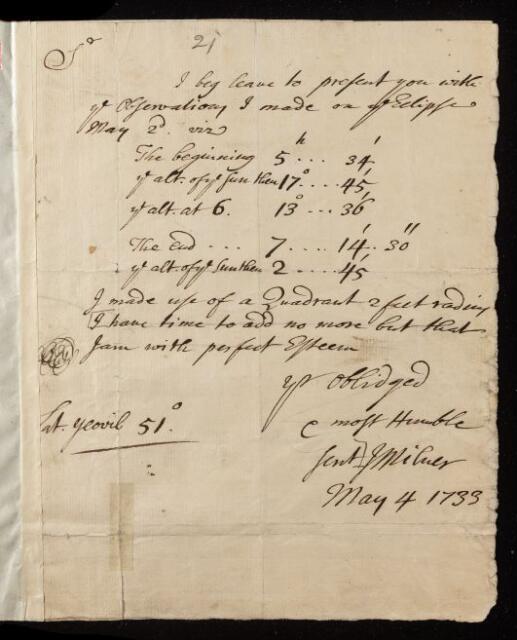 21
Sr
I beg leave to present you with
ye Observations I made on ye Eclipse
May 2d. viz
The beginning 5h .... 34'
ye alt. of ye Sun then 17° .... 45'
ye alt. at 6. 13° ... 36'
The End .... 7 .... 14' .. 30''
ye alt. of ye Sun then 2 .... 45'
I made use of a Quadrant 2 feet radius
I have time to add no more but that
I am with perfect Esteem
yr Oblidged
& most Humble
Servt J Milner
Lat. Yeovil 51°.
May 4 1733